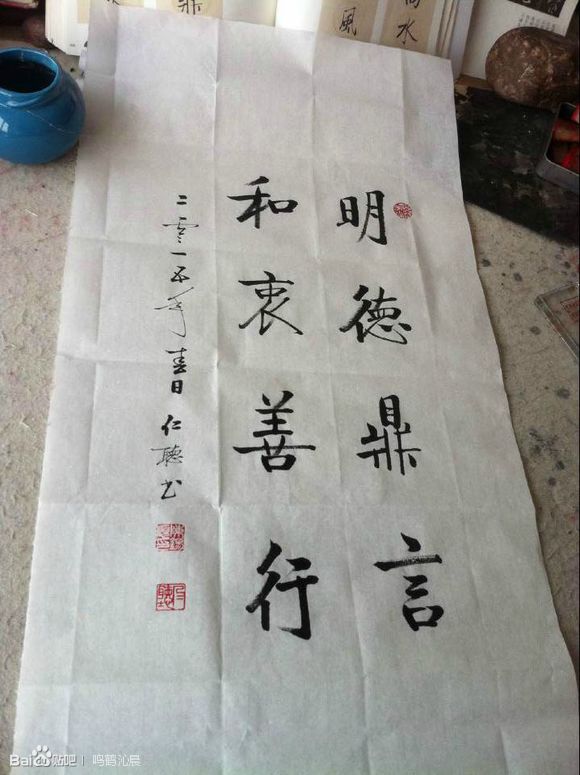 明德鼎言
和衷善行
二零一五年春日仁聪书
水
风
鼎
Bai贴吧 | 鸣鹤沁晨